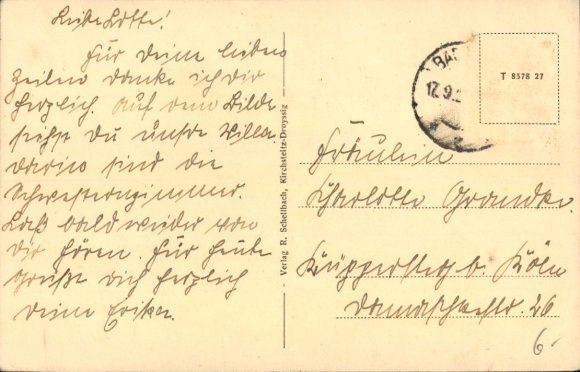 Liebe Lotte!
Für Deine lieben
Zeilen danke ich dir
herzlich. Auf dem Bilde
siehst Du unsre Villa.
darin sind die
Schwesternzimmer.
Laß bald wieder von
Dir hören. Für heute
grüßt dich herzlich
deine Erika.
Verlag R. Schellbach, Kirchsteitz-Droyssig
BAD
17.9.
T 8578 27
Fräulein
Charlotte
Küppersteg b. Köln
Damaschkestr. 26
6.-